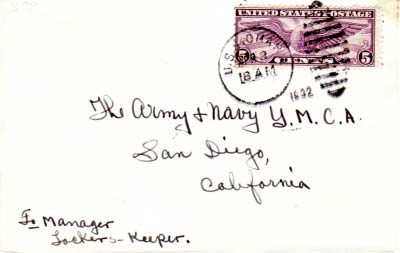 UNITED STATES POSTAGE
5 CENTS 5
U.S.S. OMAHA
18 AM
1932
The Army & Navy Y.M.C.A.
San Diego,
California
To Manager
Lockers-Keeper.